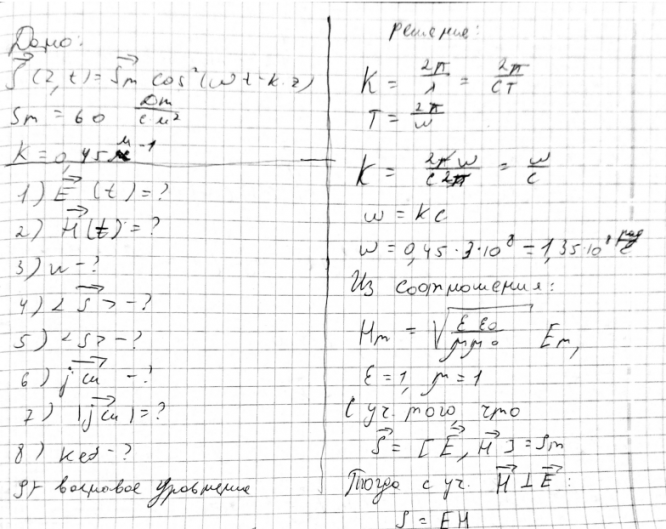 Дано:
S⃗(z,t) = S⃗m cos²(ωt - k·z)
Sm = 60 Дж/(с м²)
K = 0,45 м⁻¹
1) E⃗(t) = ?
2) H⃗(t) = ?
3) w - ?
4) <S⃗> - ?
5) <S> - ?
6) j⃗см - ?
7) |j⃗см| = ?
8) Kед - ?
9) волновое уравнение
Решение:
K = 2π/λ = 2π/(cT)
T = 2π/ω
K = 2π ω/(c 2π) = ω/c
ω = kc
ω = 0,45 · 3·10⁸ = 1,35·10⁸ рад/с
Из соотношения:
Hm = √(ε ε₀/μμ₀) Em,
ε = 1, μ = 1
С уч. того, что
S⃗ = [E⃗, H⃗] = Sm
Тогда с уч. H⃗ ⊥ E⃗:
S = EH